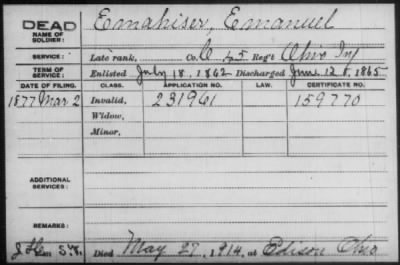 DEAD
NAME OF SOLDIER: Emahiser, Emanuel
SERVICE: Late rank, Co. C 45 Reg't Ohio Inf
TERM OF SERVICE: Enlisted July 18, 1862 Discharged June 12, 1865
DATE OF FILING. CLASS. APPLICATION NO. LAW. CERTIFICATE NO.
1877 Mar 2 Invalid, 231961 159770
Widow,
Minor,
ADDITIONAL SERVICES:
REMARKS:
Died May 27, 1914, at Edison Ohio